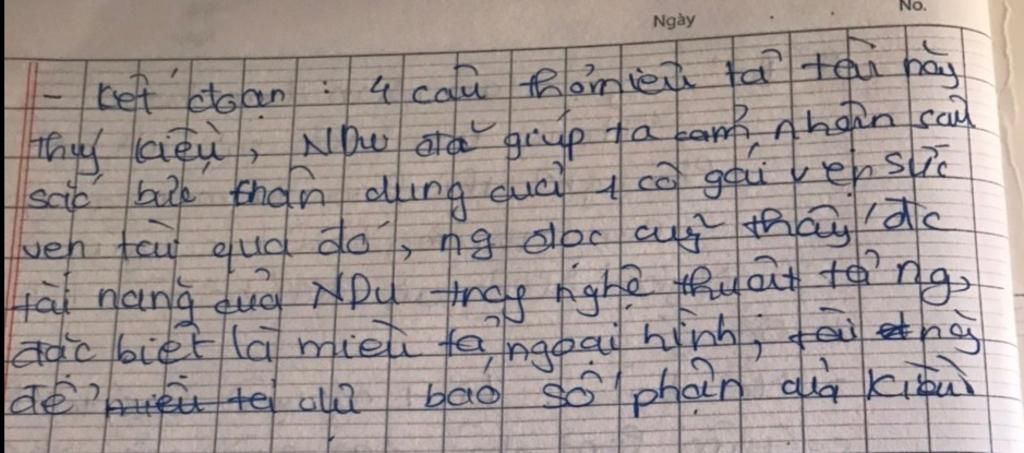 Ngày No.
- Kết đoạn : 4 câu thơ miêu tả tài này
Thuý Kiều, NDu đã giúp ta cảm nhận sâu
sắc bức chân dung của 1 cô gái vẹn sắc
vẹn tài qua đó, ng đọc cũng thấy đc
tài năng của NDu trong nghệ thuật tả ng,
đặc biệt là miêu tả ngoại hình, tài
để dự báo số phận của Kiều